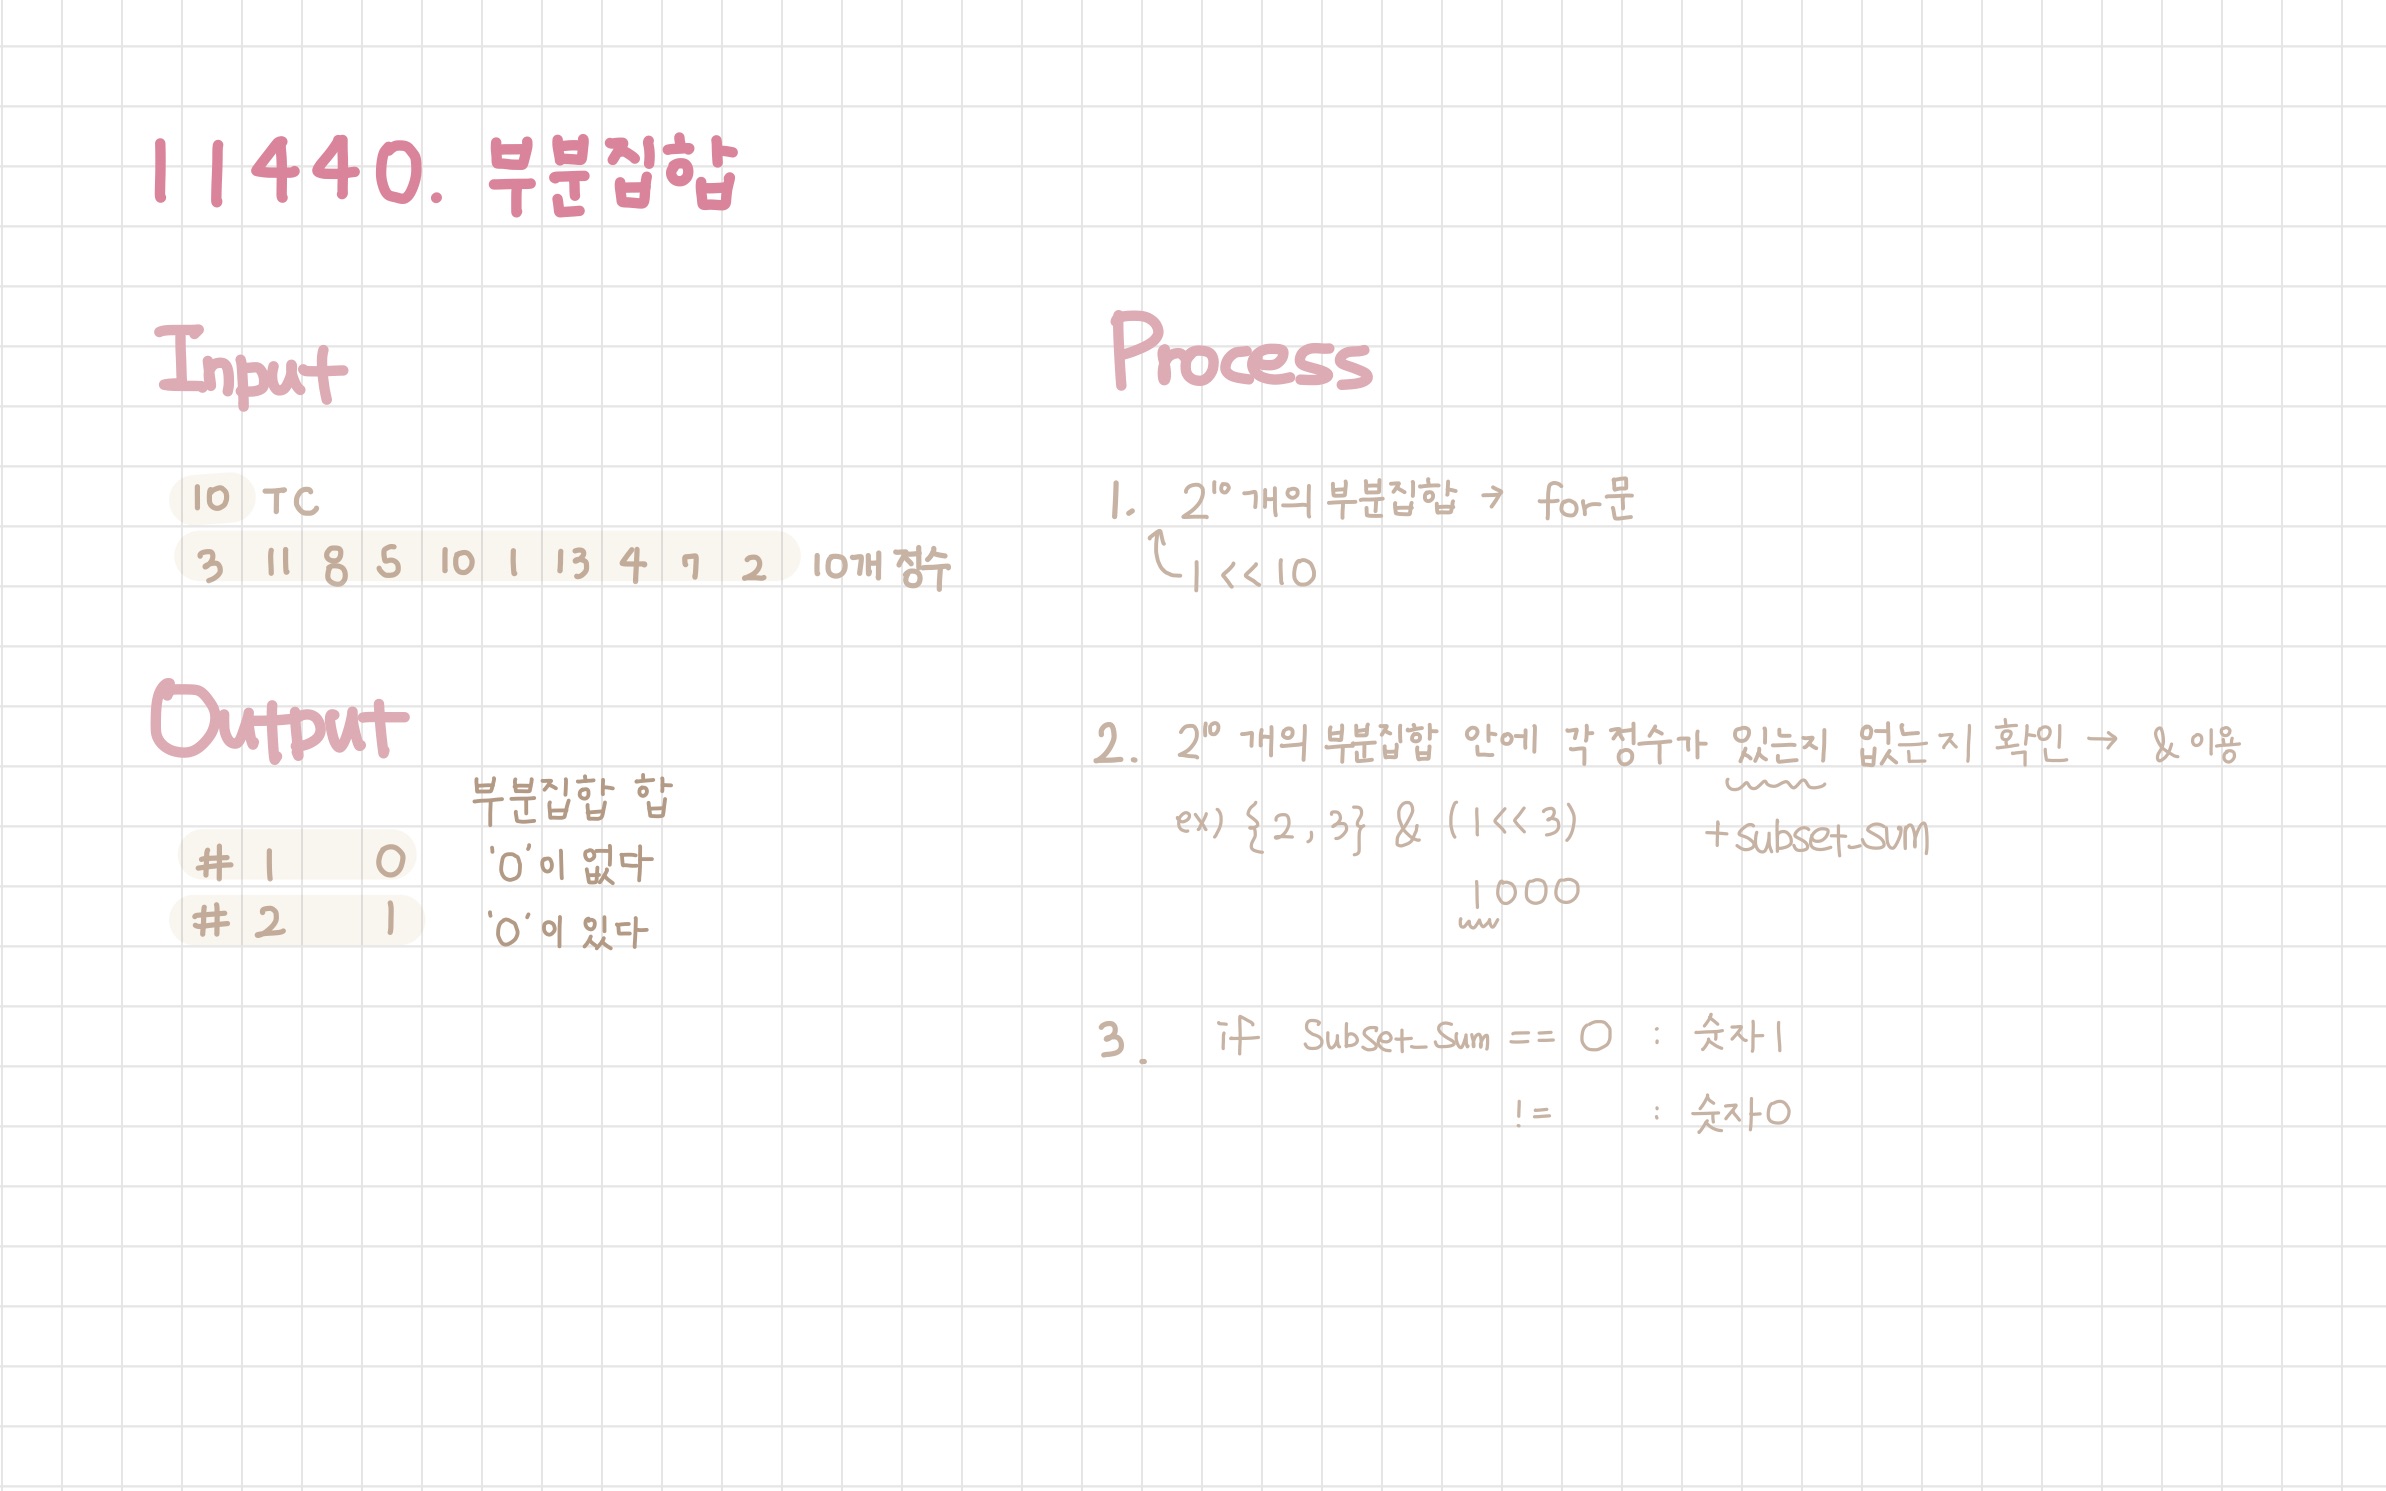 11440. 부분집합
Input
10 TC
3 11 8 5 10 1 13 4 7 2 10개 정수
Output
부분집합 합
#1 0 '0'이 없다
#2 1 '0'이 있다
Process
1. 2¹⁰개의 부분집합 → for문
1 << 10
2. 2¹⁰개의 부분집합 안에 각 정수가 있는지 없는지 확인 → & 이용
ex) {2, 3} & (1 << 3)
+subset_sum
1000
3. if Subset_Sum == 0 : 숫자1
!= : 숫자0